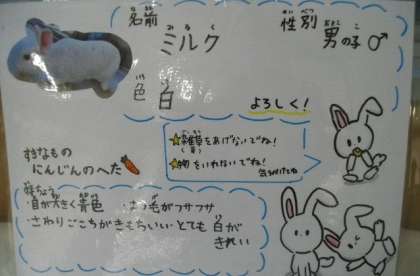 名前 みるく ミルク 性別 せいべつ 男の子 おとこ こ ♂
色 いろ 白
よろしく!
☆雑草をあげないでね!
☆物をいれないでね!
気をつけてね
すきなもの
にんじんのへた
目が大きく青色 毛がフサフサ
さわりごこちがきもちいい とても白が
きれい